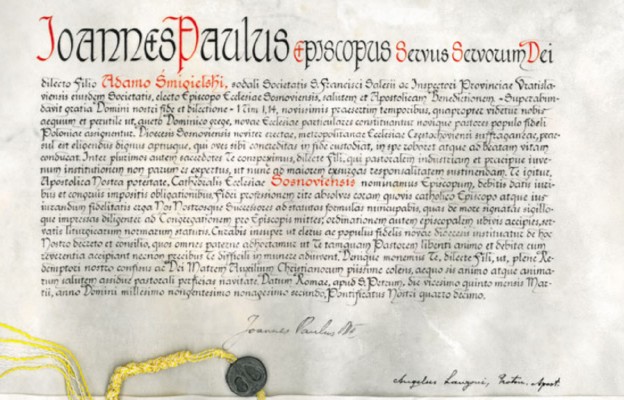 Joannes Paulus Episcopus Servus Servorum Dei
dilecto Filio Adamo Śmigielski, sodali Societatis S. Francisci Salesii ac Inspectori Provinciae Vratisla-
viensis eiusdem Societatis, electo Episcopo Ecclesiae Sosnoviensis, salutem et Apostolicam Benedictionem. Superabun-
davit gratia Domini nostri fide et dilectione - 1 Tim 1,14, novissimis praesertim temporibus, quapropter videtur nobis
aequum et perutile ut, aucto Dominico grege, novae Ecclesiae particulares constituantur novique pastores populo fideli
Poloniae assignentur. Dioecesi Sosnoviensi noviter erectae, metropolitanae Ecclesiae Częstochoviensi suffraganeae, prae-
sul est eligendus dignus aptusque, qui oves sibi concreditas in fide custodiat, in spe roboret atque ad beatam vitam
conducat. Inter plurimos autem sacerdotes Te conspeximus, dilecte Fili, qui pastoralem industriam et praecipue iuve-
num institutionem non parum es expertus, ut nunc ad maiorem exsurgas responsalitatem sustinendam. Te igitur,
Apostolica Nostra potestate, Cathedralis Ecclesiae Sosnoviensis nominamus Episcopum, debitis datis iuri-
bus et congruis impositis obligationibus. Fidei professionem cito absolves coram quovis catholico Episcopo atque ius-
iurandum fidelitatis erga Nos Nostrosque Successores ad statutas formulas nuncupabis, quas de more signatis sigillo-
que impressis diligenter ad Congregationem pro Episcopis mittes; ordinationem autem episcopalem ubivis accipies, ser-
vatis liturgicarum normarum statutis. Curabis insuper ut clerus ac populus fidelis novae dioecesis instituatur de hoc
Nostro decreto et consilio, quos omnes paterne adhortamur ut Te tamquam Pastorem libenti animo et debita cum
reverentia accipiant necnon precibus Te difficili in munere adiuvent. Denique monemus Te, dilecte Fili, ut, plene Re-
demptori nostro confisus ac Dei Matrem Auxilium Christianorum piissime colens, aequo sis animo atque anima-
rum salutem assidue pastorali perficias navitate. Datum Romae, apud S. Petrum, die vicesimo quinto mensis Mar-
tii, anno Domini millesimo nongentesimo nonagesimo secundo, Pontificatus Nostri quarto decimo.
Joannes Paulus
Angelus Lanzoni, Proton. Apost.